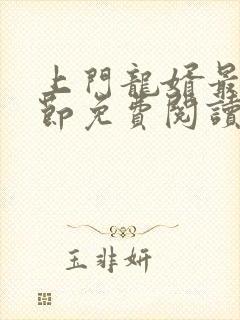 上門龍婿最
節免費閱讀
玉非妍